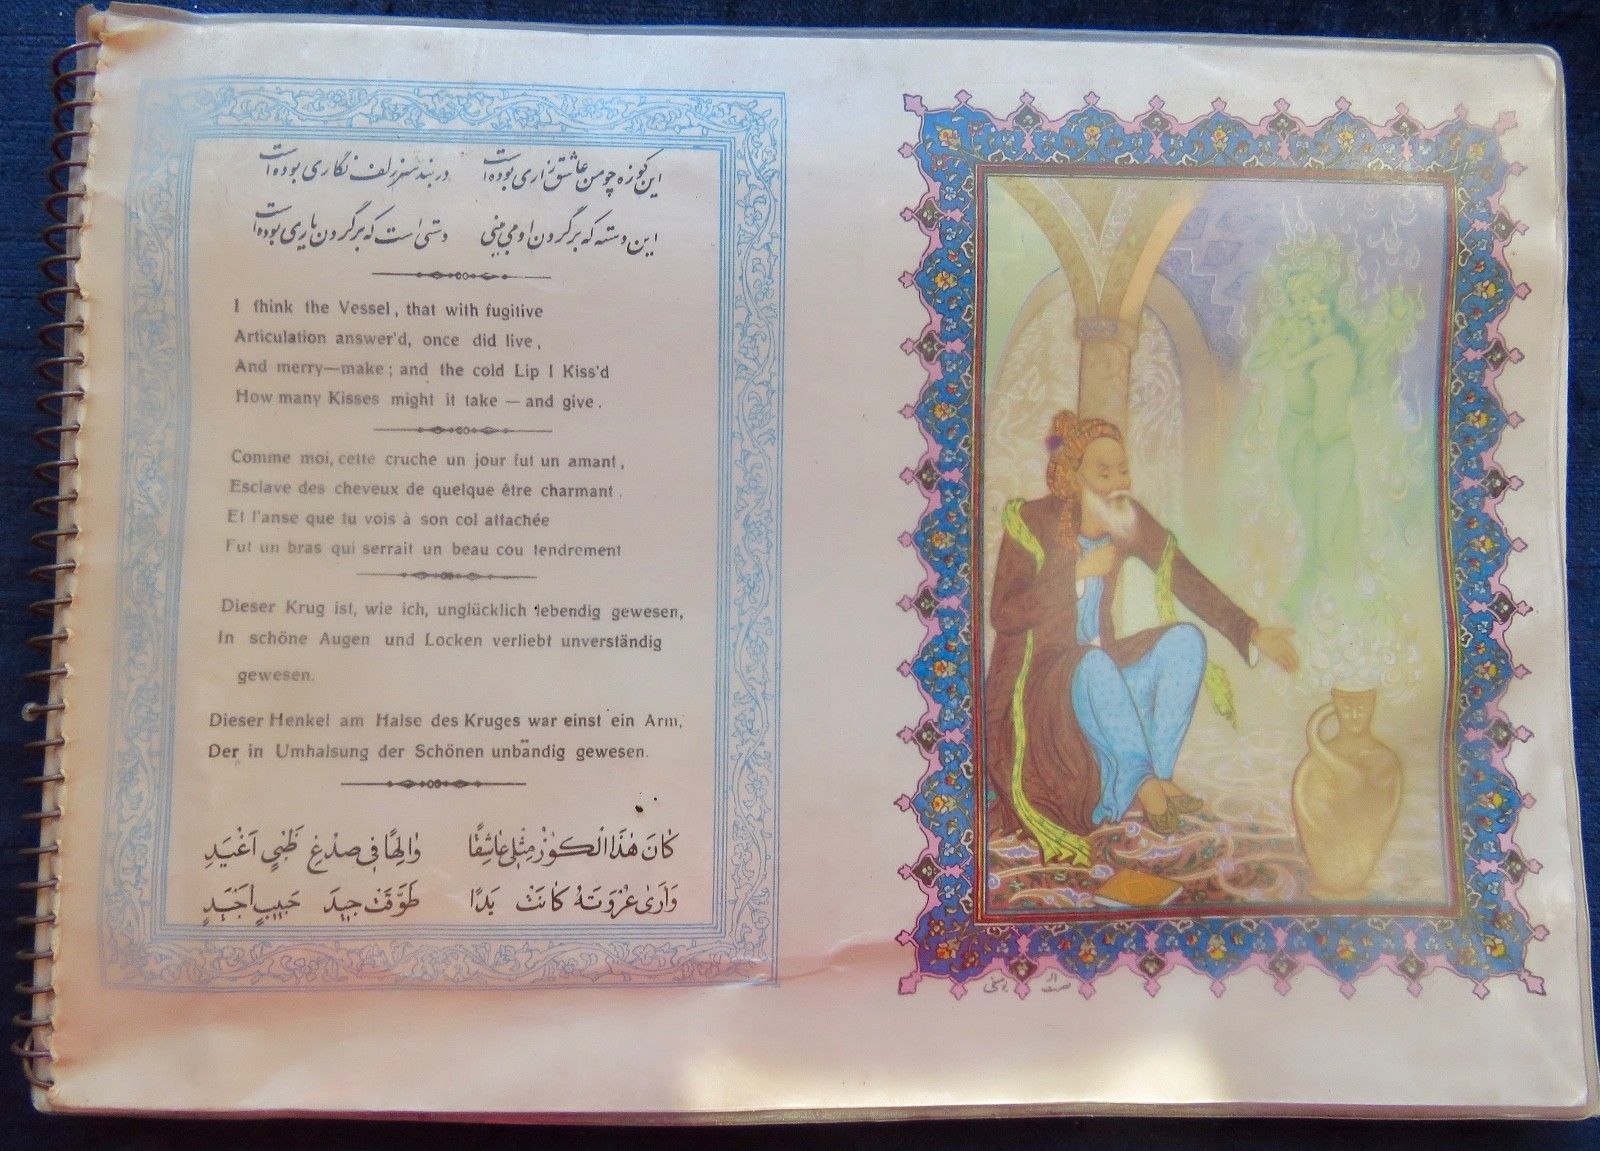 این کوزه چو من عاشق زاری بوده است    در بند سر زلف نگاری بوده است
این دسته که بر گردن او می بینی    دستی است که بر گردن یاری بوده است
I think the Vessel, that with fugitive
Articulation answer'd, once did live,
And merry—make; and the cold Lip I Kiss'd
How many Kisses might it take — and give.
Comme moi, cette cruche un jour fut un amant,
Esclave des cheveux de quelque être charmant.
Et l'anse que tu vois à son col attachée
Fut un bras qui serrait un beau cou tendrement
Dieser Krug ist, wie ich, unglücklich lebendig gewesen,
In schöne Augen und Locken verliebt unverständig
gewesen.
Dieser Henkel am Halse des Kruges war einst ein Arm,
Der in Umhalsung der Schönen unbändig gewesen.
كَانَ هٰذَا الْكُوزُ مِثْلِي عَاشِقًا    وَالِهًا فِي صُدْغِ ظَبْيٍ اَغْيَدِ
وَاَرىٰ عُرْوَتَهُ كَانَتْ يَدًا    طَوَّقَتْ جِيدَ حَبِيبٍ اَجْيَدِ